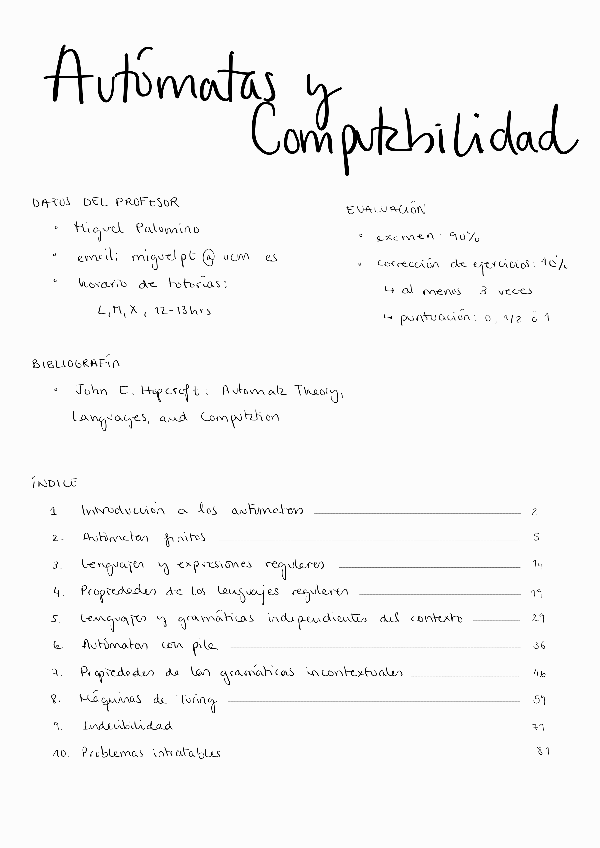 Autómatas y
Computabilidad
DATOS DEL PROFESOR
◦ Miguel Palomino
◦ email: miguelpt @ ucm es
◦ horario de tutorías:
L, M, X, 12-13hrs
EVALUACIÓN
◦ examen: 90%
◦ corrección de ejercicios: 10%
↳ al menos 3 veces
↳ puntuación: 0, 1/2 ó 1
BIBLIOGRAFÍA
◦ John E. Hopcroft. Automata Theory,
Languages, and Computation
ÍNDICE
1. Introducción a los autómatas 2
2. Autómatas finitos 5
3. Lenguajes y expresiones regulares
4. Propiedades de los lenguajes regulares 19
5. Lenguajes y gramáticas independientes del contexto 29
6. Autómatas con pila 36
7. Propiedades de las gramáticas incontextuales 46
8. Máquinas de Turing 59
9. Indecibilidad
10. Problemas intratables 81